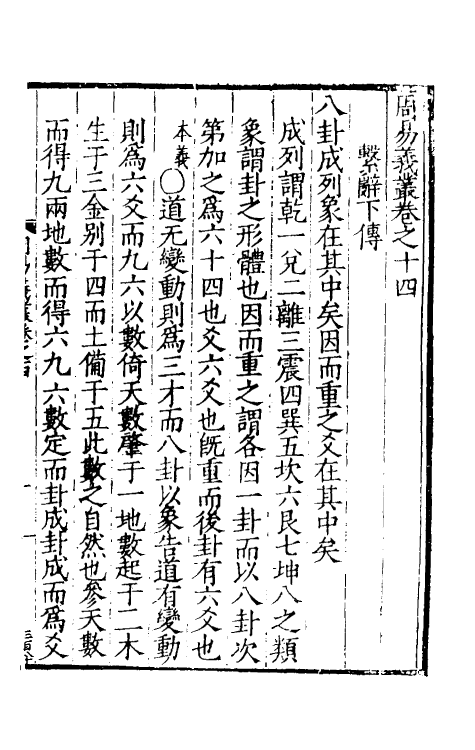 周易義叢卷之十四
繫辭下傳
八卦成列象在其中矣因而重之爻在其中矣
成列謂乾一兌二離三震四巽五坎六艮七坤八之類
象謂卦之形體也因而重之謂各因一卦而以八卦次
第加之爲六十四也爻六爻也旣重而後卦有六爻也
本義〇道无變動則爲三才而八卦以象告道有變動
則爲六爻而九六以數倚天數肇于一地數起于二木
生于三金别于四而土備于五此數之自然也參天數
而得九兩地數而得六九六數定而卦成卦成而爲爻